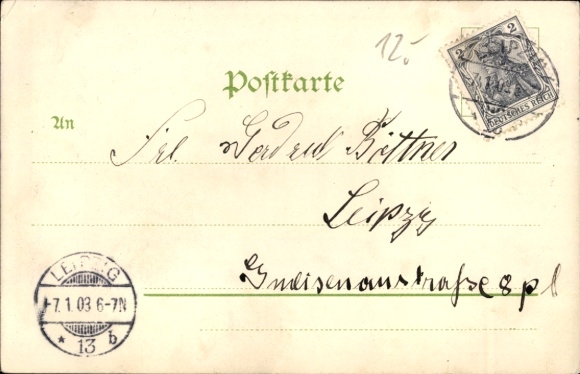 12.-
2 2
DEUTSCHES REICH
Postkarte
An
Frl. Gertrud Böttner
Leipzig
Gneisenaustraße 8 p l
LEIPZIG
7.1.03 6-7N
* 13 b